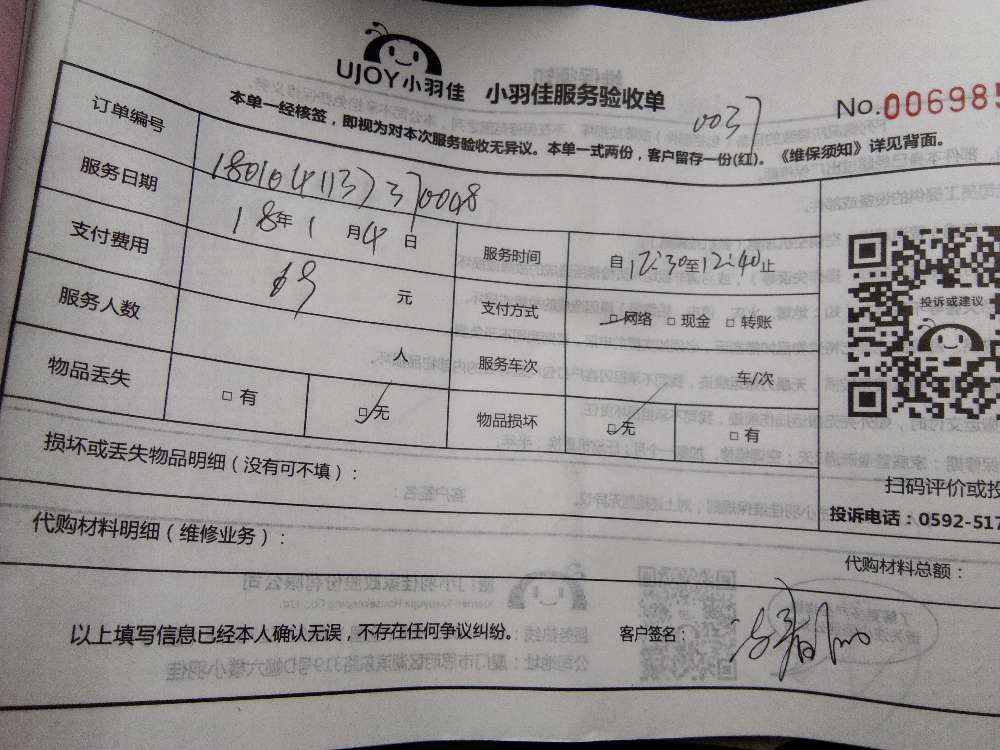 UJOY小羽佳 小羽佳服务验收单
0037
No.006985
本单一经核签，即视为对本次服务验收无异议。本单一式两份，客户留存一份(红)。《维保须知》详见背面。
订单编号 1801041137370008
服务日期 18年1月4日 服务时间 自12:30至12:40止
支付费用 69元 支付方式 □网络 □现金 □转账
服务人数 人 服务车次 车/次
物品丢失 □有 □无 物品损坏 □无 □有
投诉或建议
损坏或丢失物品明细（没有可不填）：
扫码评价或投
投诉电话：0592-517
代购材料明细（维修业务）：
代购材料总额：
以上填写信息已经本人确认无误，不存在任何争议纠纷。 客户签名：